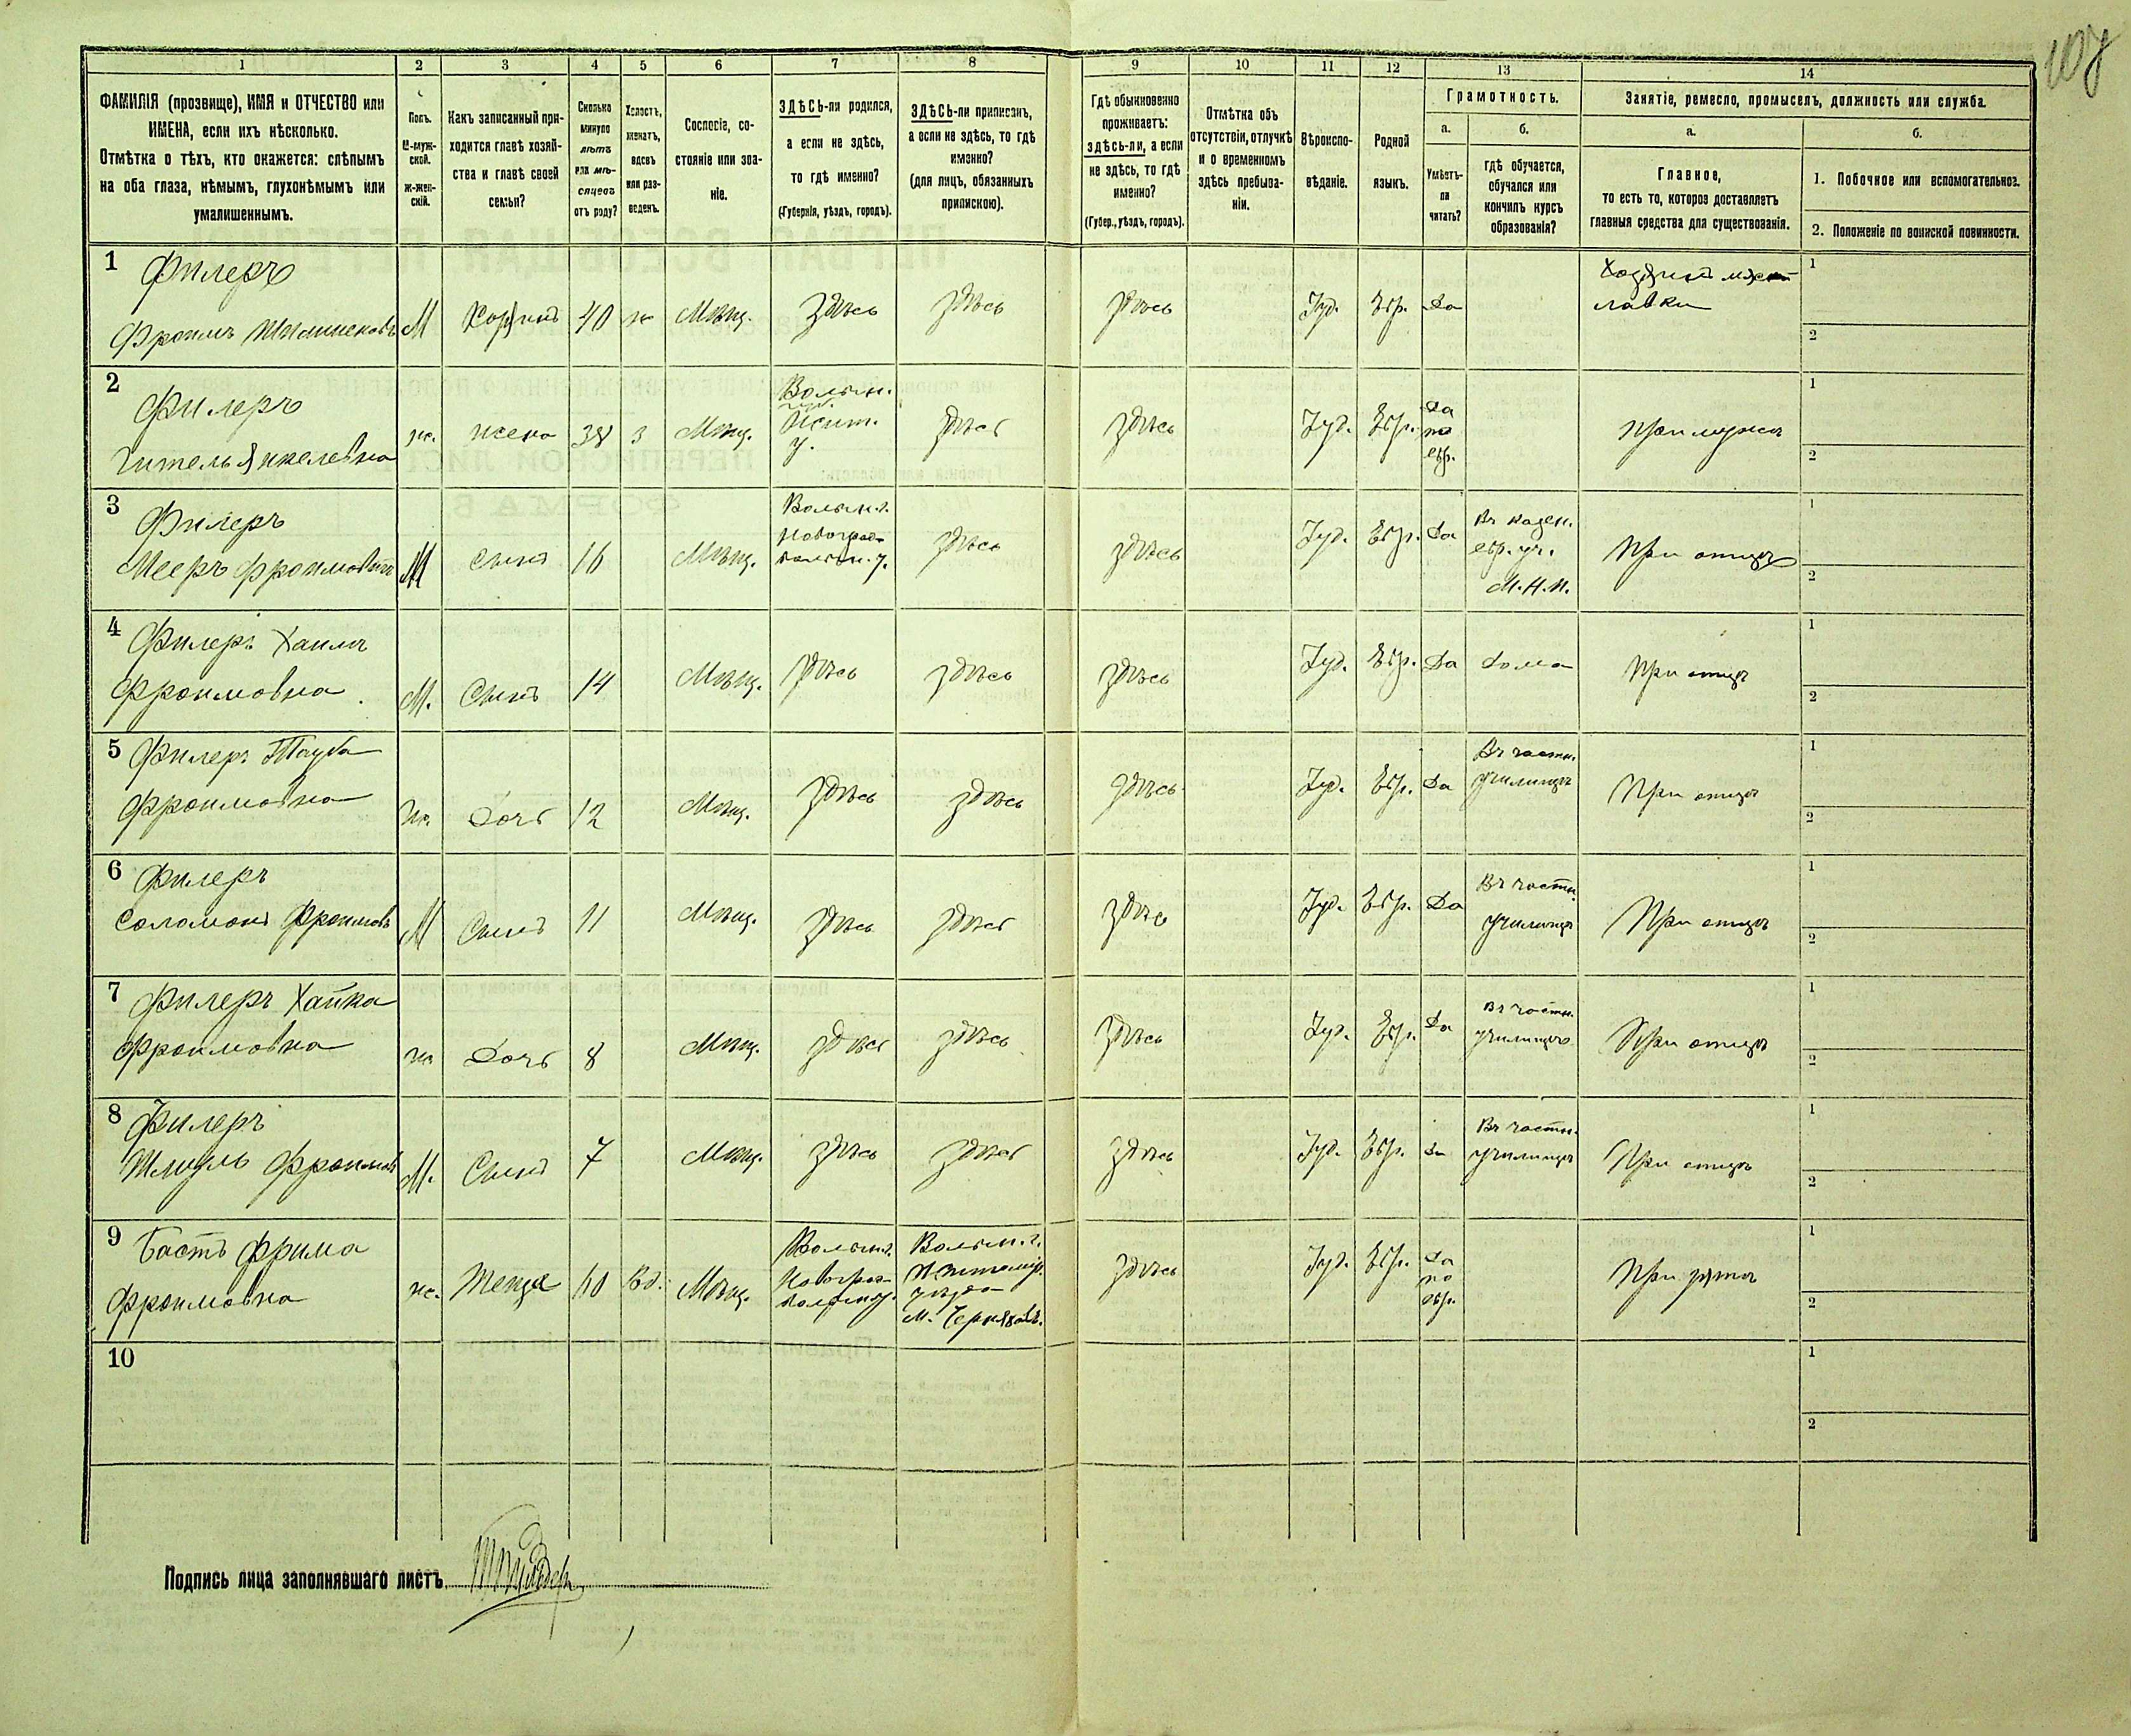 107
1 2 3 4 5 6 7 8 9 10 11 12 13 14
ФАМИЛІЯ (прозвище), ИМЯ и ОТЧЕСТВО или
ИМЕНА, если ихъ нѣсколько.
Отмѣтка о тѣхъ, кто окажется: слѣпымъ
на оба глаза, нѣмымъ, глухонѣмымъ или
умалишеннымъ.
Полъ.
М-муж-
ской.
Ж-жен-
скій.
Какъ записанный при-
ходится главѣ хозяй-
ства и главѣ своей
семьи?
Сколько
минуло
лѣтъ
или мѣ-
сяцевъ
отъ роду?
Холостъ,
женатъ,
вдовъ
или раз-
веденъ.
Сословіе, со-
стояніе или зва-
ніе.
ЗДѢСЬ-ли родился,
а если не здѣсь,
то гдѣ именно?
(Губернія, уѣздъ, городъ).
ЗДѢСЬ-ли приписанъ,
а если не здѣсь, то гдѣ
именно?
(для лицъ, обязанныхъ
припискою).
Гдѣ обыкновенно
проживаетъ:
здѣсь-ли, а если
не здѣсь, то гдѣ
именно?
(Губер., уѣздъ, городъ).
Отмѣтка объ
отсутствіи, отлучкѣ
и о временномъ
здѣсь пребыва-
ніи.
Вѣроиспо-
вѣданіе.
Родной
языкъ.
Грамотность.
а.
Умѣетъ-
ли
читать?
б.
гдѣ обучается,
обучался или
кончилъ курсъ
образованія?
Занятіе, ремесло, промыселъ, должность или служба.
а.
Главное,
то есть то, которое доставляетъ
главныя средства для существованія.
б.
1. Побочное или вспомогательное.
2. Положеніе по воинской повинности.
1 Филеръ
Фроимъ
М Хозяинъ 40 ж Мѣщ. здѣсь здѣсь здѣсь Іуд. Евр. Да
Хозяинъ
лавки
1
2
2 Филеръ
Гитель Янкелевна
ж. жена 38 з Мѣщ.
Волын.
губ.
Жит.
у.
здѣсь здѣсь Іуд. Евр.
Да
по
евр.
При мужѣ
1
2
3 Филеръ
Мееръ Фроимовичъ
М Сынъ 16 Мѣщ.
Волын. г.
Новоград-
волын. у.
здѣсь здѣсь Іуд. Евр. Да
Въ казен.
евр. уч.
М. Н. П.
При отцѣ
1
2
4 Филеръ Хаимъ
Фроимовна
М. Сынъ 14 Мѣщ. здѣсь здѣсь здѣсь Іуд. Евр. Да Дома При отцѣ
1
2
5 Филеръ Тауба
Фроимовна
ж. Дочь 12 Мѣщ. здѣсь здѣсь здѣсь Іуд. Евр. Да
Въ частн.
училищѣ
При отцѣ
1
2
6 Филеръ
Соломонъ Фроимовъ
М Сынъ 11 Мѣщ. здѣсь здѣсь здѣсь Іуд. Евр. Да
Въ частн.
училищѣ
При отцѣ
1
2
7 Филеръ Хайка
Фроимовна
ж. Дочь 8 Мѣщ. здѣсь здѣсь здѣсь Іуд. Евр. Да
Въ частн.
училищѣ
При отцѣ
1
2
8 Филеръ
Шмуль Фроимовъ
М. Сынъ 7 Мѣщ. здѣсь здѣсь здѣсь Іуд. Евр. Да
Въ частн.
училищѣ
При отцѣ
1
2
9 Бастъ Фрима
Фроимовна
ж. Теща 60 Вд. Мѣщ.
Волын. г.
Новоград-
волын. у.
Волын. г.
Житомир.
уѣзда
м. Черняховъ.
здѣсь Іуд. Евр.
Да
по
евр.
При зятѣ
1
2
10
1
2
Подпись лица заполнявшаго листъ